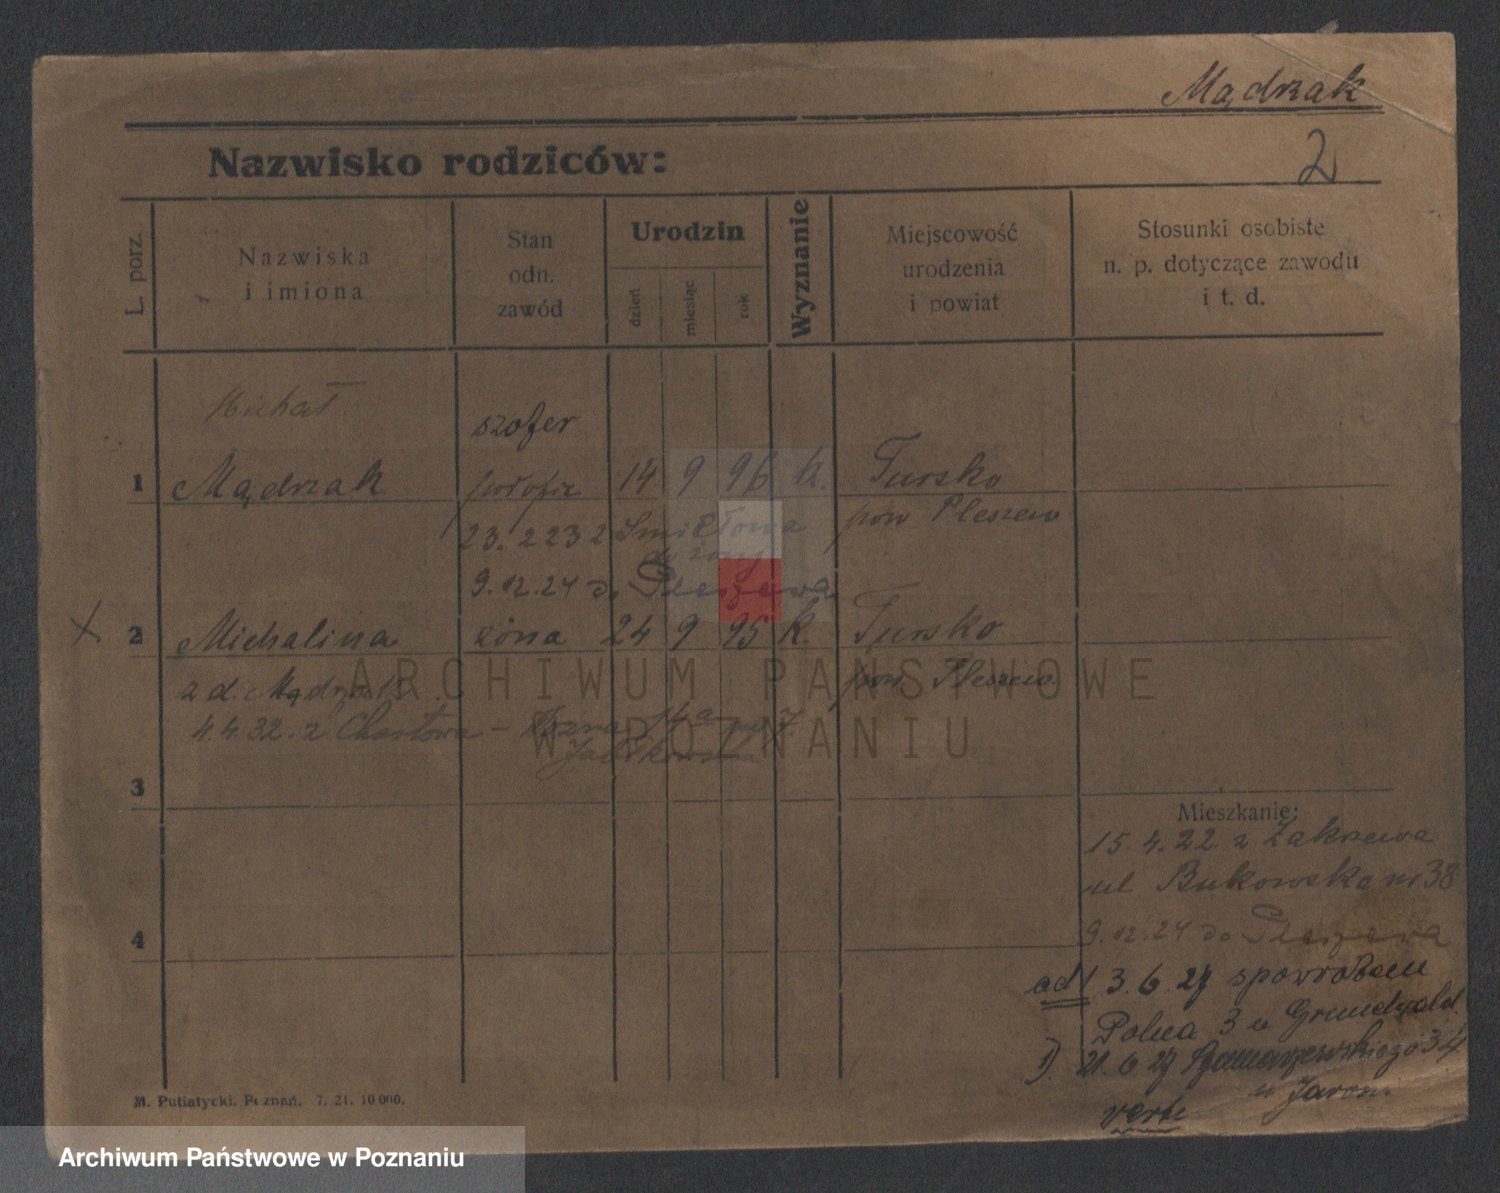 Mądrzak
2
Nazwisko rodziców:
L. porz.
Nazwiska
i imiona
Stan
odn.
zawód
Urodzin
dzień
miesiąc
rok
Wyznanie
Miejscowość
urodzenia
i powiat
Stosunki osobiste
n. p. dotyczące zawodu
i t. d.
Michał
szofer
1 Mądrzak 14 9 96 k. Tursko
pow Pleszew
23.2 23 z
9.12.24 do Pleszewa
2 Michalina żona 24 9 95 k. Tursko
z d. Mądrzak pow. Pleszew
4.4.32. z
ARCHIWUM PAŃSTWOWE
W POZNANIU
3
Mieszkanie:
15.4.22 z Zakrzewa
ul Bukowska nr 38
4
9.12.24 do Pleszewa
ad 1 3.6.27 spowrotem
Polna 3 u Grundwald
1) 21.6.27 34
u Jarom.
verte
M. Putiatycki. Poznań. 7. 21. 10 000.
Archiwum Państwowe w Poznaniu